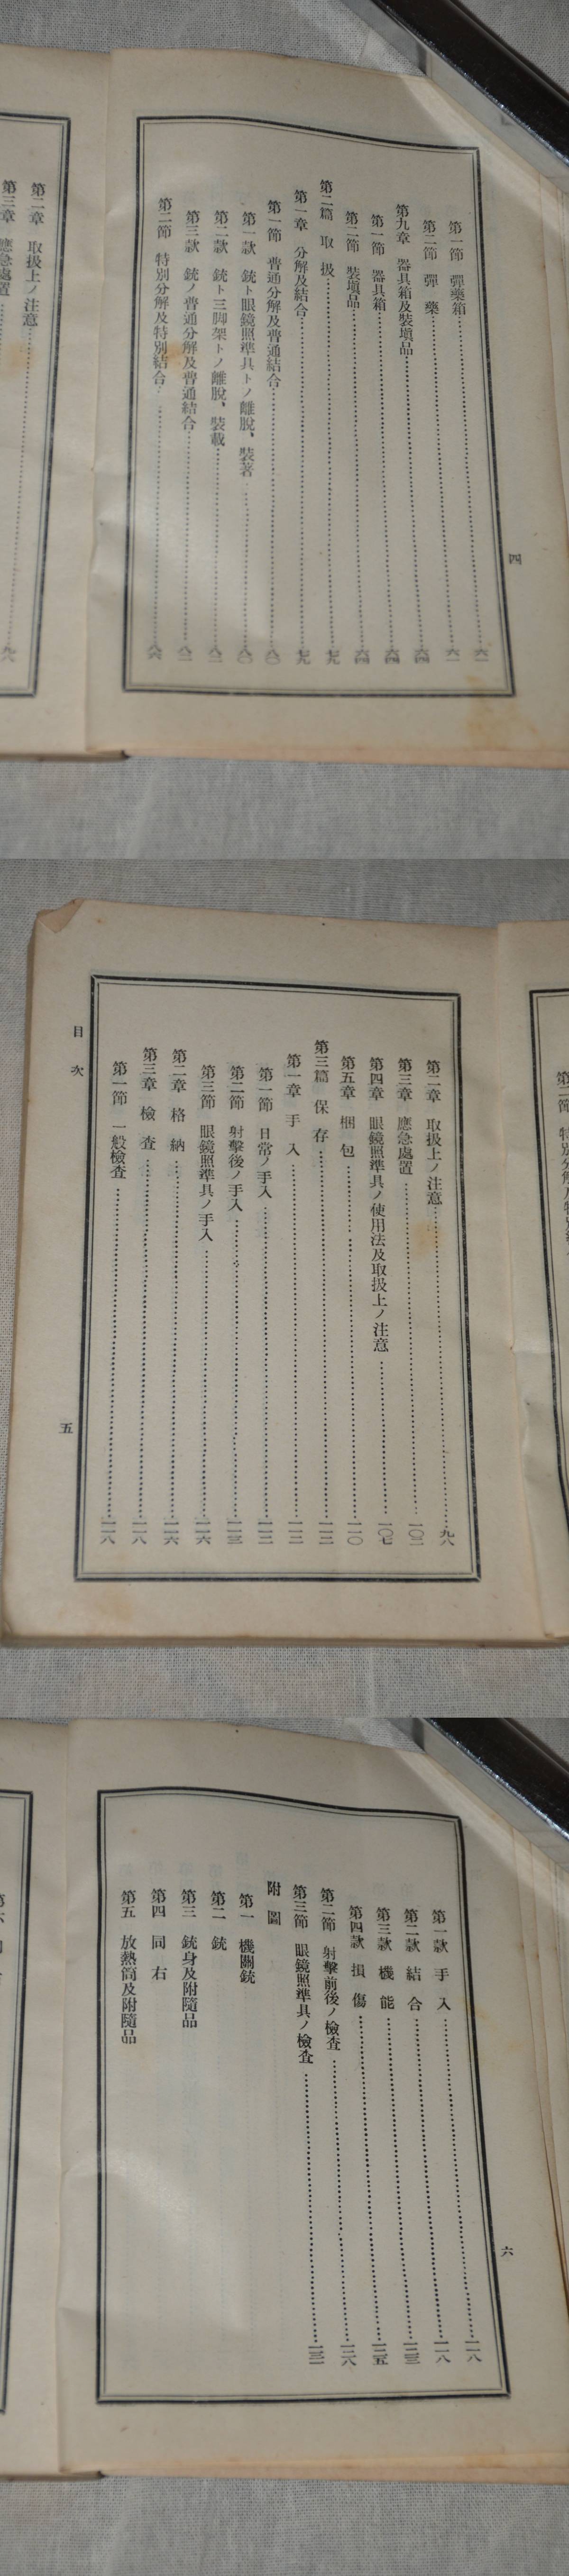 四
第一節 彈藥箱………六一
第二節 彈藥………六一
第九章 器具箱及裝塡品………六四
第一節 器具箱………六四
第二節 裝塡品………六四
第二篇 取扱………七九
第一章 分解及結合………七九
第一節 普通分解及普通結合………八〇
第一款 銃ト眼鏡照準具トノ離脫、裝著………八〇
第二款 銃ト三脚架トノ離脫、裝載………八二
第三款 銃ノ普通分解及普通結合………八二
第二節 特別分解及特別結合………八六
第二章 取扱上ノ注意………九八
第三章 應急處置
第二章 取扱上ノ注意………九八
第三章 應急處置………一〇二
第四章 眼鏡照準具ノ使用法及取扱上ノ注意………一〇七
第五章 梱包………一一〇
第三篇 保存………一一二
第一章 手入………一一二
第一節 日常ノ手入………一一二
第二節 射擊後ノ手入………一一三
第三節 眼鏡照準具ノ手入………一一六
第二章 格納………一一六
第三章 檢查………一一八
第一節 一般檢查………一一八
目次
五
六
第一款 手入………一一八
第二款 結合………一一八
第三款 機能………一二三
第四款 損傷………一二五
第二節 射擊前後ノ檢查………一二八
第三節 眼鏡照準具ノ檢查………一三一
附圖
第一 機關銃
第二 銃
第三 銃身及附隨品
第四 同右
第五 放熱筒及附隨品